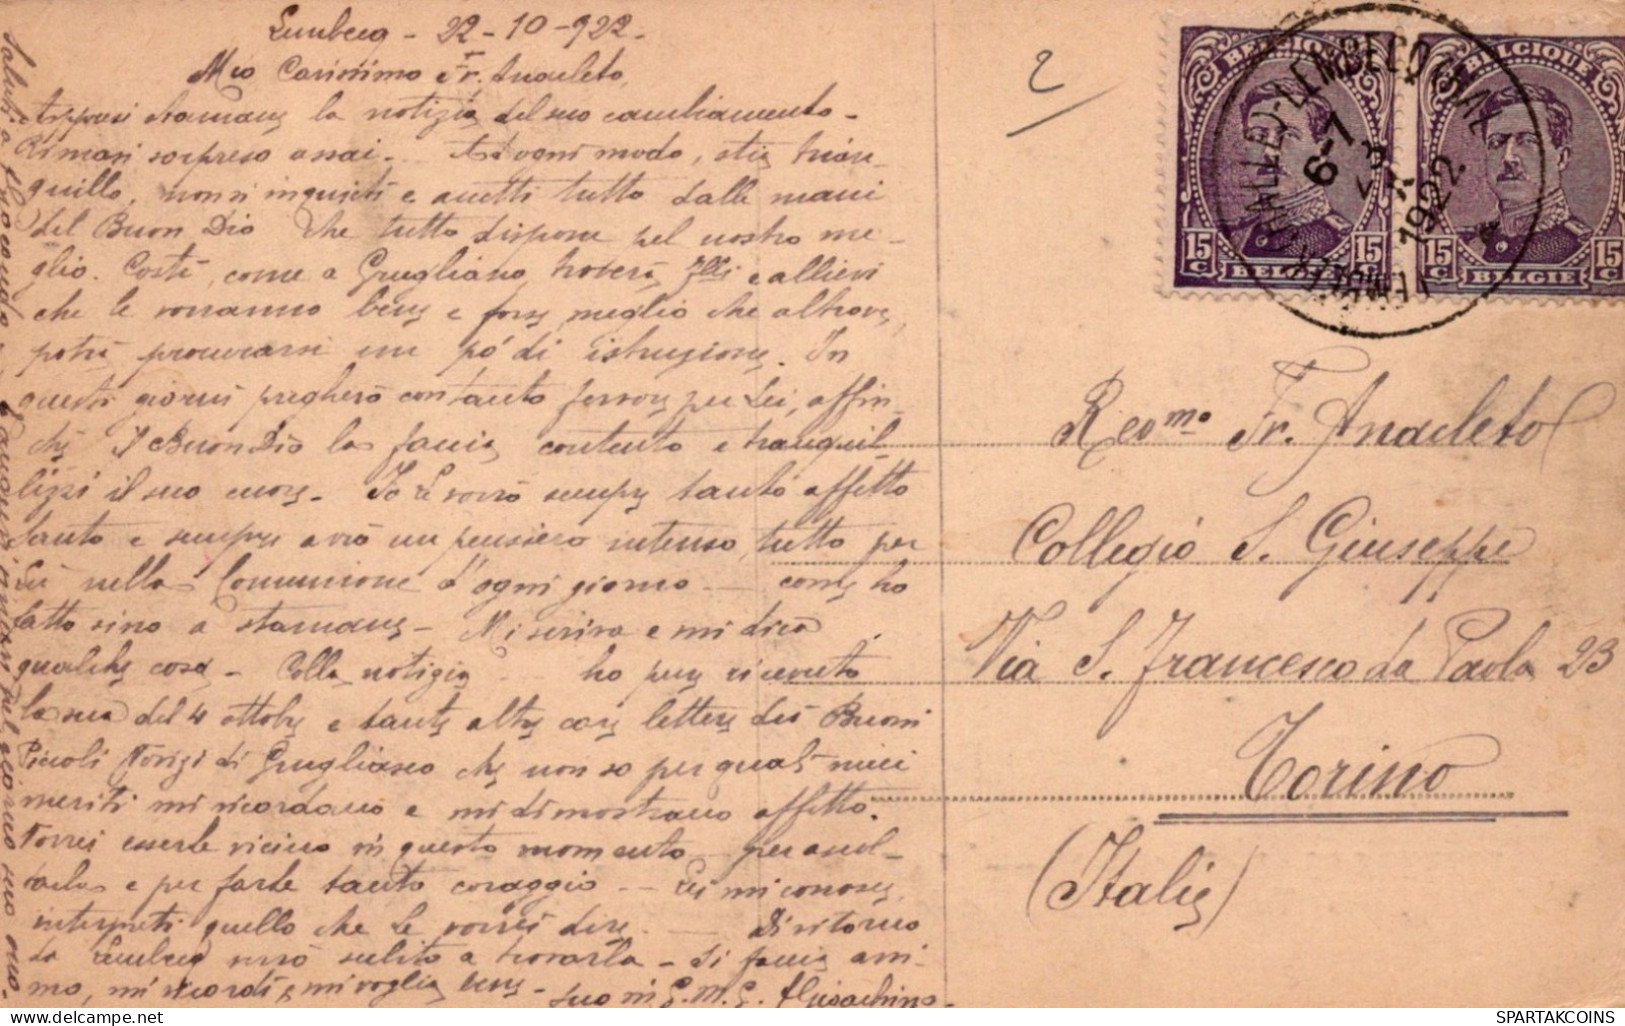 Lembecq - 22-10-922.
Mio Carissimo Fr. Anacleto,
Appresi stamane la notizia del suo cambiamento.
Rimasi sorpreso assai. Ad ogni modo, stia tran-
quillo, non si inquieti e accetti tutto dalle mani
del Buon Dio che tutto dispone pel nostro me-
glio. Costì, come a Grugliasco, troverà Flli e allievi
che le vorranno bene e forse meglio che altrove,
potrà procurarsi un pò di istruzione. In
questi giorni pregherò con tanto fervore per Lei, affin-
chè il Buon Dio la faccia contento e tranquil-
lizzi il suo cuore. Io Le vorrò sempre tanto affetto
tanto e sempre avrò un pensiero intenso, tutto per
Lei nella Comunione d'ogni giorno — come ho
fatto sino a stamane. Mi scriva e mi dica
qualche cosa. Colla notizia ho pure ricevuto
la sua del 4 ottobre e tante altre care lettere dei Buoni
Piccoli Novizi di Grugliasco che non so per quali miei
meriti mi ricordano e mi dimostrano affetto.
Vorrei esserle vicino in questo momento per ascol-
tarla e per farle tanto coraggio. — Lei mi conosce,
interpreti quello che Le vorrei dire. — Di ritorno
da Lembecq verrò subito a trovarla. Si faccia ani-
mo, mi ricordi, e mi voglia bene. Suo in G.M.G.
Rev.mo Fr. Anacleto
Collegio S. Giuseppe
Via S. Francesco da Paola 23
Torino
(Italie)
2
BELGIQUE
15 15
C C
BELGIE
BELGIQUE
15 15
C C
BELGIE
6-7
1922
SPARTAKCOINS
www.delcampe.net